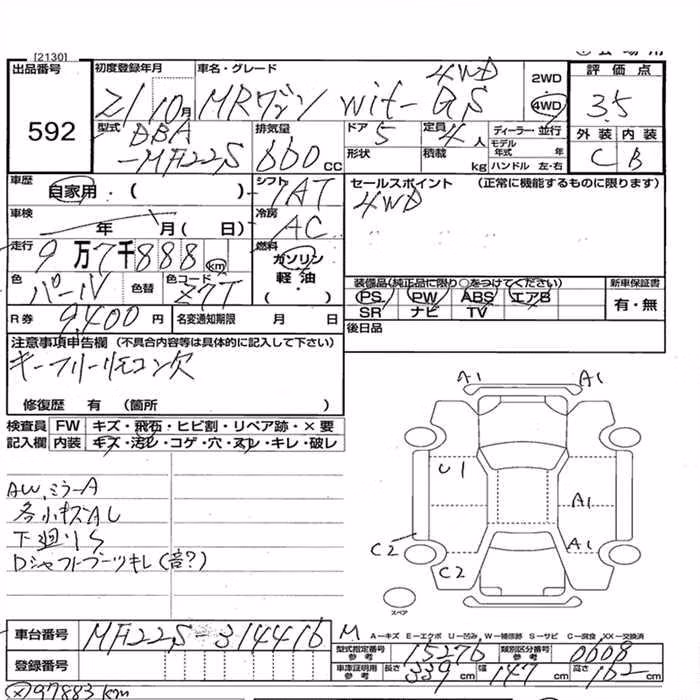 [2130]
出品番号
592
初度登録年月 車名・グレード 4WD
21 10月 MRワゴン wit- GS
2WD
4WD
評価点
3.5
外装 内装
C B
型式 DBA
-MF22S
排気量
660 cc
ドア 5
形状
定員 4人
積載 kg
ディーラー・並行
モデル年式 年
ハンドル 左・右
車歴 自家用・( )
シフト IAT
車検 年 月( 日)
冷房 AC
走行 9万7千888 km
燃料 ガソリン
軽油
( )
色 パール 色替 色コード Z7T
R券 9,400円 名変通知期限 月 日
セールスポイント (正常に機能するものに限ります)
4WD
装備品(純正品に限り○をつけてください) 新車保証書
PS PW ABS エアB
SR ナビ TV
有・無
後日品
注意事項申告欄 (不具合内容等は具体的に記入して下さい)
キーフリーリモコン欠
修復歴 有 (箇所 )
検査員 FW キズ・飛石・ヒビ割・リペア跡・×要
記入欄 内装 キズ・汚れ・コゲ・穴・スレ・キレ・破レ
AW、ミラーA
各小キズAし
下廻りS
Dシャフトブーツキレ(音?)
A1 A1
U1
A1
A1
C2
C2
スペア
車台番号 MF22S-314416
登録番号
M
A-キズ E-エクボ U-凹み W-補修跡 S-サビ C-腐食 XX-交換済
型式指定番号 参考 15276 類別区分番号 参考 0608
車庫証明用 参考 長さ 339cm 幅 147cm 高さ 162cm
97883km